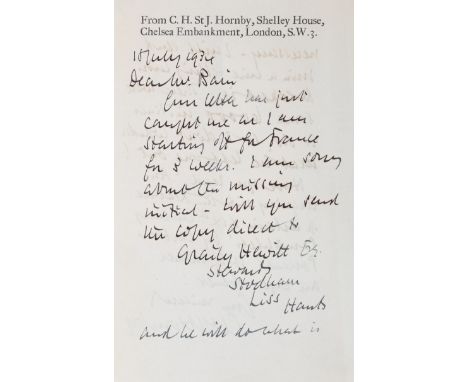 From C. H. St J. Hornby, Shelley House,
Chelsea Embankment, London, S.W.3.
18 July 1934
Dear Mr. Bain
Your letter has just
caught me as I am
starting off for France
for 3 weeks. I am sorry
about the missing
initial - will you send
the copy direct to
Graily Hewitt Esq.
Stewards
Stodham
Liss
Hants
and he will do what is